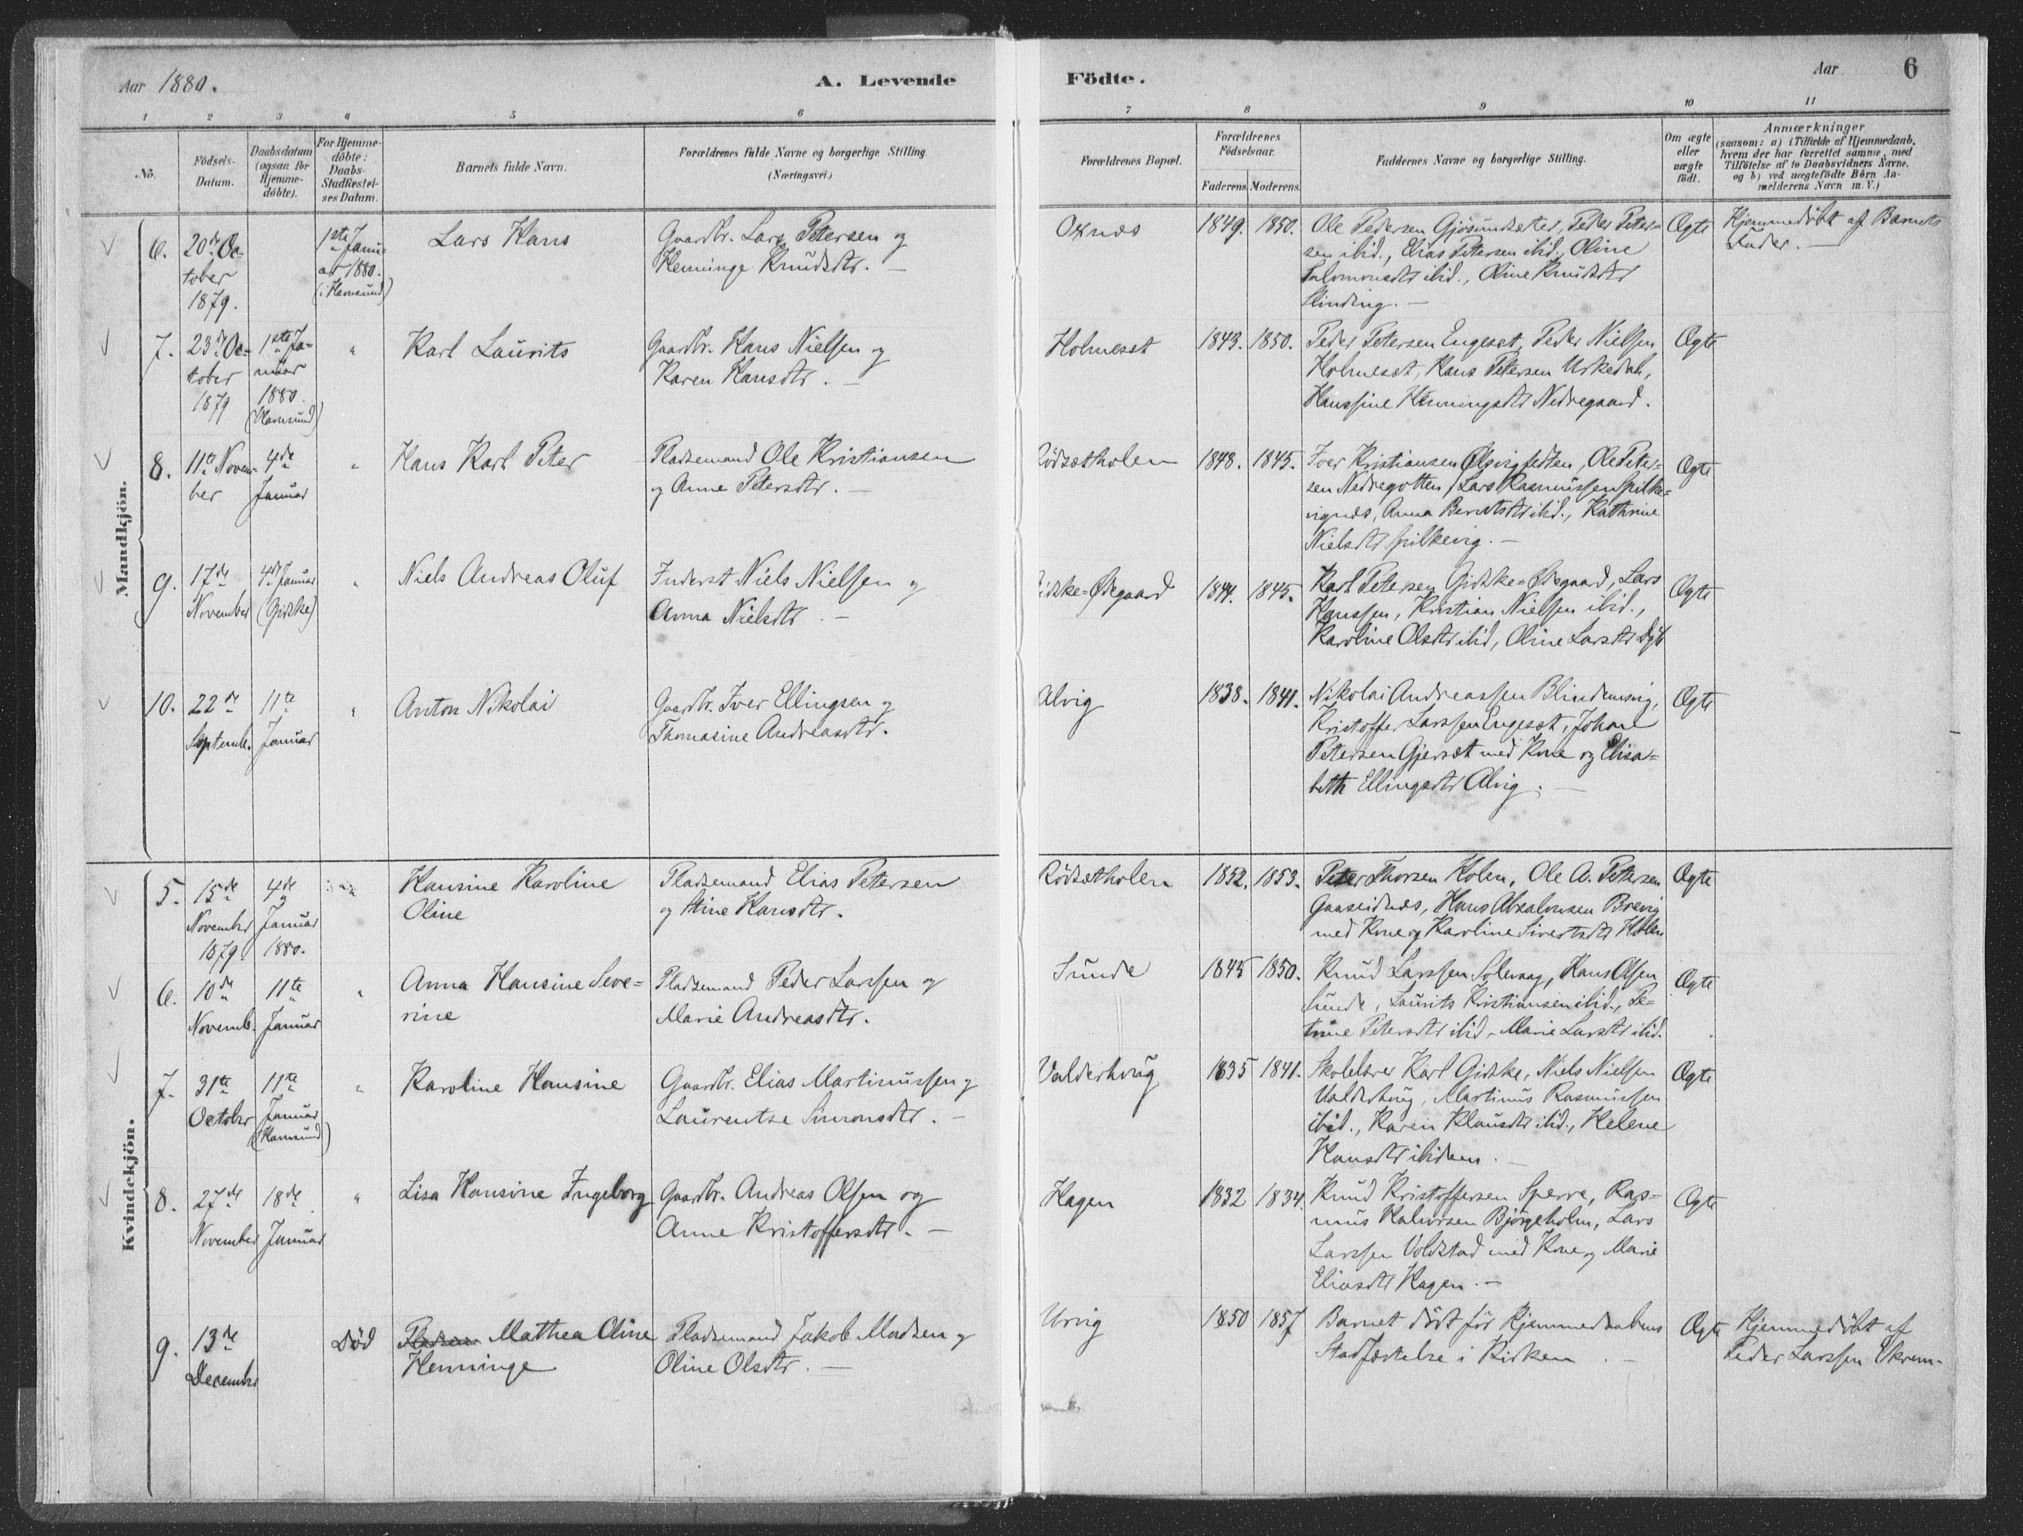 Aar 1880.
A. Levende
Födte.
Aar
6
1 2 3 4 5 6 7 8 9 10 11
No.
Födsels-
Datum.
Daabsdatum
(ogsaa for
Hjemme-
döbte).
For Hjemme-
döbte:
Daabs-
Stadfæstel-
ses Datum.
Barnets fulde Navn.
Forældrenes fulde Navne og borgerlige Stilling
(Næringsvei.)
Forældrenes Bopæl.
Forældrenes
Födselsaar.
Faderens. Moderens.
Faddernes Navne og borgerlige Stilling.
Om ægte
eller
uægte
födt.
Anmærkninger
(saasom: a) i Tilfælde af Hjemmedaab,
hvem der har forrettet samme, med
Tilföielse af to Daabsvidners Navne,
og b) ved uægtefödte Börn An-
melderens Navn m. V.)
Mandkjön.
6.
20de Oc-
tober
1879.
1ste Janu-
ar 1880.
(i Havnsund)
Lars Hans
Gaardbr. Lars Petersen og
Henninge Knudsdtr. —
Oxnæs
1849. 1850.
Ole Pedersen Gjösundsæter, Peder Peter-
sen ibid., Elias Petersen ibid., Oline
Salomonsdtr ibid., Oline Knudsdtr
Slinding. —
Ægte
Hjemmedöbt af Barnets
Fader. —
7.
23de Oc-
tober
1879
1ste Ja-
nuar
1880.
(Havnsund)
"
Karl Laurits
Gaardbr. Hans Nielsen og
Karen Hansdtr. —
Holmeset
1843. 1850.
Peder Petersen Engeset, Peder Nielsen
Holmeset, Hans Petersen Urkedal,
Hanssine Henningsdtr Nedregaard.
Ægte
8.
11te Novem-
ber
4de
Januar
"
Hans Karl Peter
Pladsemand Ole Kristiansen
og Anne Petersdtr. —
Rödsætholen
1848. 1845.
Iver Kristiansen Ølgvigfedten, Ole Peter-
sen Nedregotten, Lars Rasmussen Spilke-
vignæs, Anna Berntsdtr ibid., Kathrine
Nielsdtr Spilkevig. —
Ægte
9.
17de
November
4de Januar
(Gidske)
"
Niels Andreas Oluf
Inderst Niels Nielsen og
Anna Nielsdtr. —
Gidske-Ødegaard
1844. 1845.
Karl Petersen Gidske-Ødegaard, Lars
Hanssen, Kristian Nielsen ibid.,
Karoline Olsdtr ibid., Oline Larsdtr
Ægte
10.
22de
Septemb.
11te
Januar
"
Anton Nikolai
Gaardbr. Iver Ellingsen og
Thomasine Andreasdtr.
Alvig
1838. 1841.
Nikolai Andreassen Blindemsvig,
Kristoffer Larssen Engeset, Johan
Petersen Gjerset med Kone og Elisa-
beth Ellingsdtr Alvig. —
Ægte
Kvindekjön.
5.
15de
November
1879
4de
Januar
1880.
"
Hansine Karoline
Oline
Pladsemand Elias Petersen
og Stine Hansdtr.
Rödsætholen
1852. 1853.
Peter Thorsen Holen, Ole A. Petersen
Gaaseidnæs, Hans Absalonsen Brevig
med Kone og Karoline Sivertsdtr Holen
Ægte
6.
10de
Novemb.
11te
Januar
"
Anna Hansine Seve-
rine
Pladsemand Peder Larssen og
Marie Andreasdtr.
Sunde
1845 1850.
Knud Larssen Solevaag, Hans Olsen
Sunde, Laurits Kristiansen ibid., Pe-
trine Petersdtr ibid., Marie Larsdtr ibid.
Ægte
7.
31te
October
11te
Januar
(Havnsund)
"
Karoline Hansine
Gaardbr. Elias Martinussen og
Laurentse Simonsdtr. —
Valderhoug
1835 1841.
Skolelærer Karl Gidske, Niels Nielsen
Valderhoug, Martinus Rasmussen
ibid., Karen Klausdtr ibid., Helene
Hansdtr ibidem. —
Ægte
8.
27de
November
18de
Januar
"
Lisa Hansine Ingeborg
Gaardbr. Andreas Olsen og
Anne Kristoffersdtr. —
Hagen
1832 1834.
Knud Kristoffersen Sperre, Ras-
mus Halvorsen Bjørgeholm, Lars
Larssen Voldstad med Kone og Marie
Eliasdtr Hagen. —
Ægte
9.
13de
December
Död
Mathea Oline
Henninge
Pladsemand Jakob Madsen og
Oline Olsdtr. —
Urvig
1850 1857
Barnet dödt för Hjemmedaabens
Stadfæstelse i Kirken. —
Ægte
Hjemmedöbt af
Peder Larssen